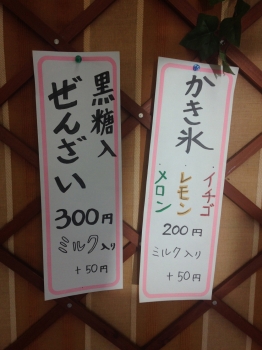 かき氷
・イチゴ
・レモン
・メロン
200円
ミルク入り
+50円
黒糖入
ぜんざい
300円
ミルク入り
+50円